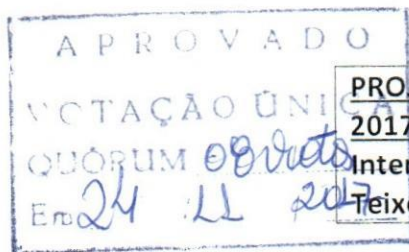 A P R O V A D O
VOTAÇÃO ÚNICA
QUÓRUM 08 votos
Em 24 11 2017
PRO
2017
Inter
Teixe